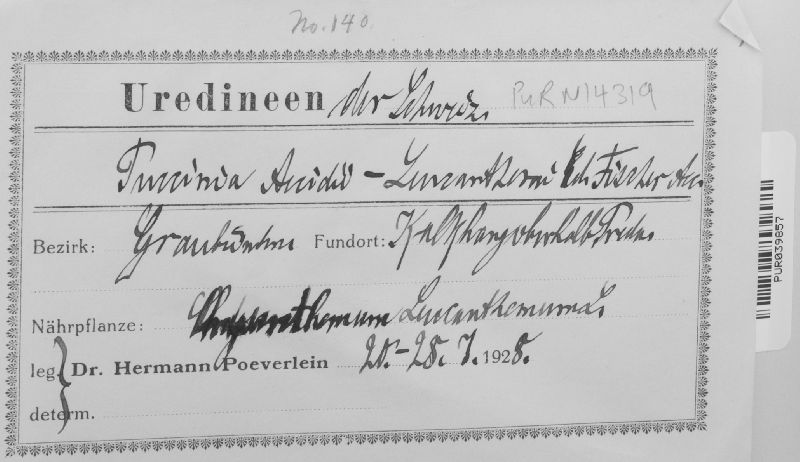 No. 140.
Uredineen der Schweiz.
PUR N14319
Puccinia Aecidii - Leucanthemi Ed. Fischer Aec.
Bezirk: Graubünden Fundort: Kalkhang oberhalb Preda.
Nährpflanze: Chrysanthemum Leucanthemum L.
leg. Dr. Hermann Poeverlein 20.-28. 7. 1928.
determ.
PUR039857